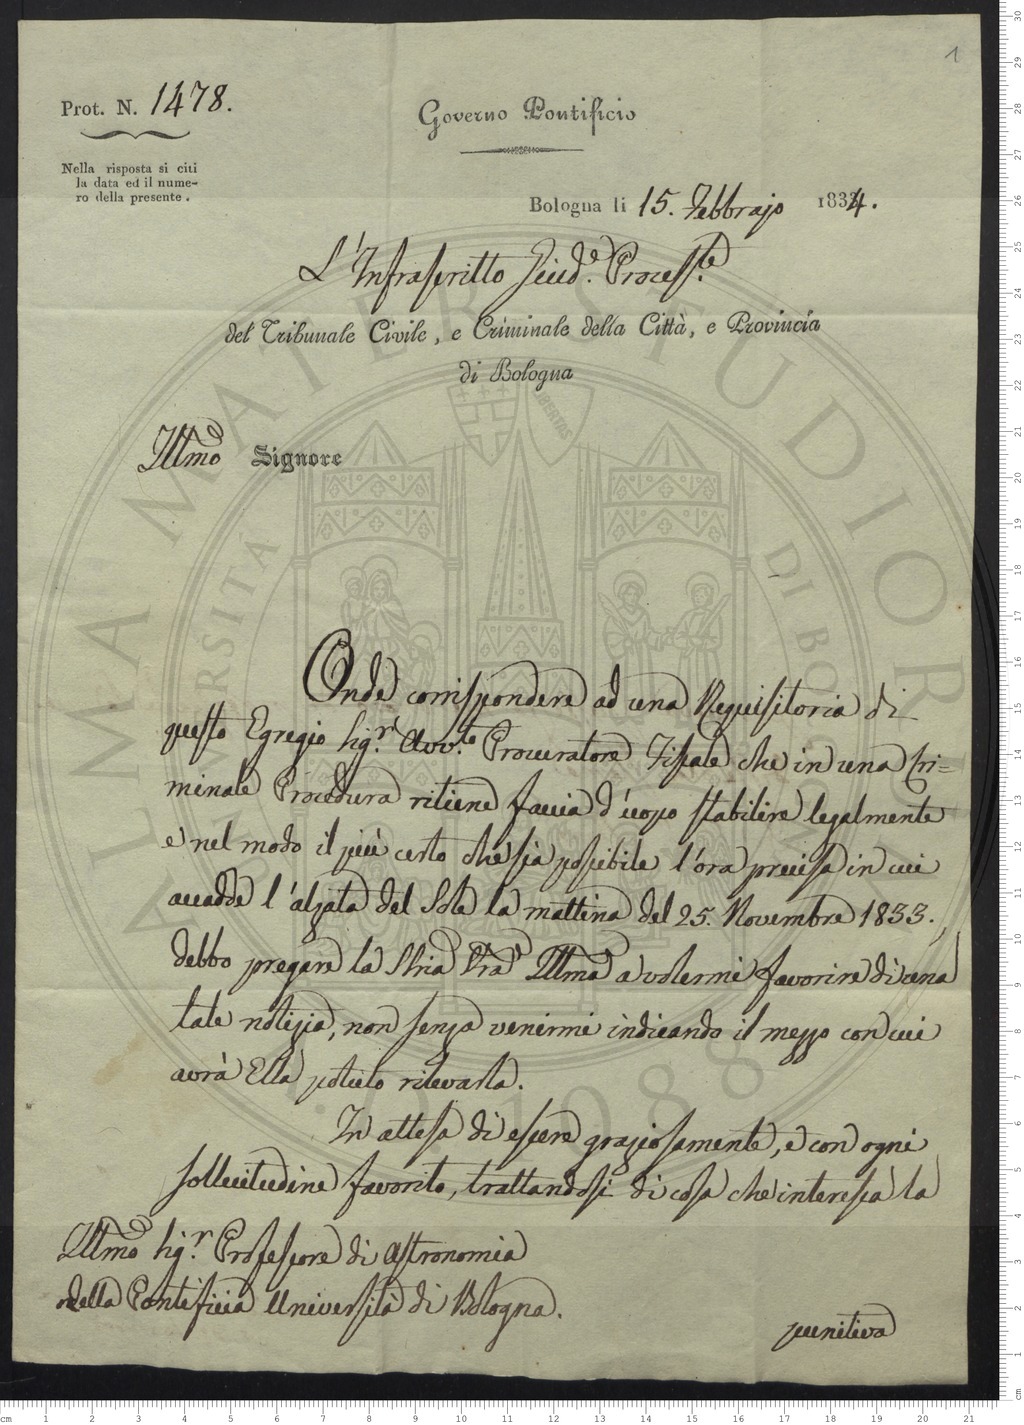 1
Prot. N. 1478.
Governo Pontificio
Nella risposta si citi
la data ed il nume-
ro della presente.
Bologna li 15. Febbrajo 1834.
L'Infrascritto Giud.e Process.te
del Tribunale Civile, e Criminale della Città, e Provincia
di Bologna
Illmo Signore
Onde corrispondere ad una Requisitoria di
questo Egregio Sig.r Avv.to Procuratore Fiscale che in una Cri=
minale Procedura ritiene faccia d'uopo stabilire legalmente
e nel modo il più certo che sia possibile l'ora precisa in cui
accadde l'alzata del Sole la mattina del 25. Novembre 1833.,
debbo pregare la S̃ria Vr̃a Illma a volermi favorire di una
tale notizia, non senza venirmi indicando il mezzo con cui
avrà Ella potuto rilevarla.
In attesa di essere graziosamente, e con ogni
sollecitudine favorito, trattandosi di cosa che interessa la
Illmo Sig.r Professore di Astronomia
della Pontificia Università di Bologna.
punitiva
ALMA MATER STUDIORUM
UNIVERSITÀ DI BOLOGNA
LIBERTAS
A.D. 1088